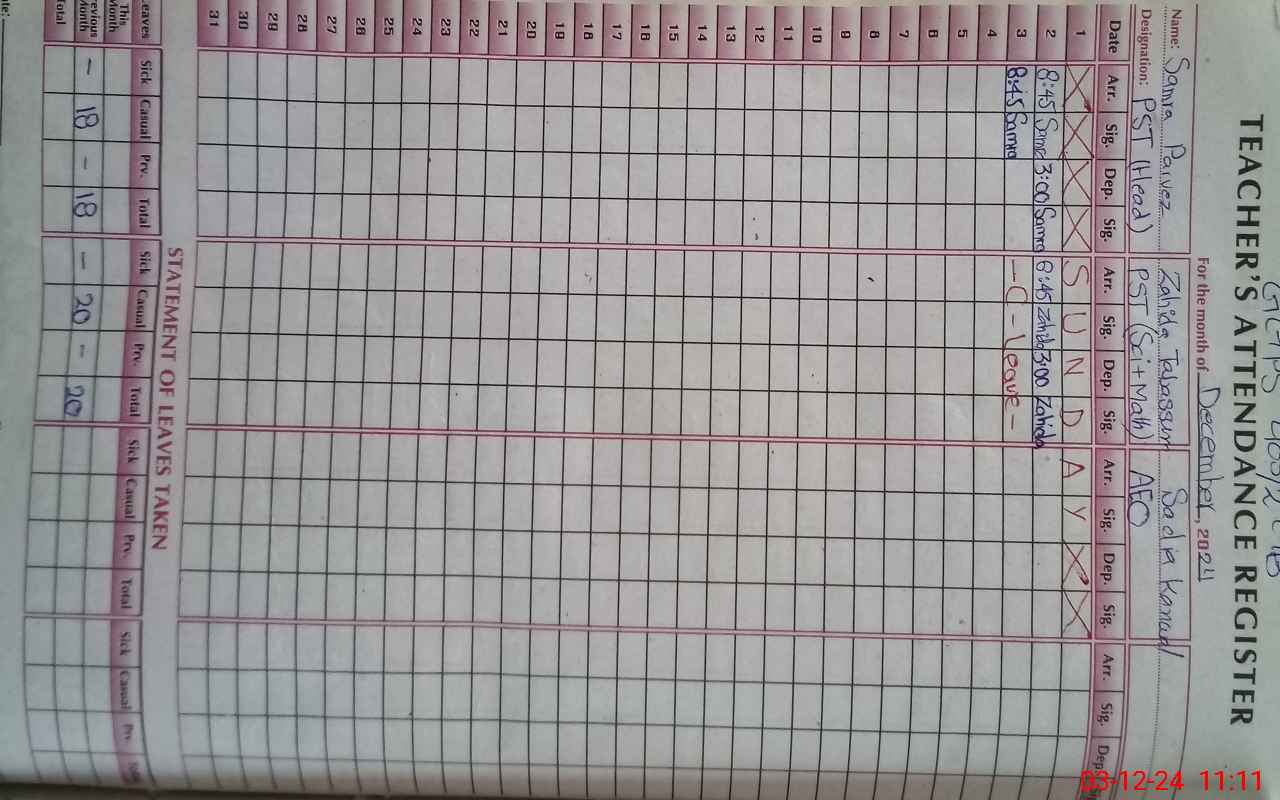 TEACHER'S ATTENDANCE REGISTER
For the month of December, 2024
Name: Samra Parvez Zahida Tabassum Sadia Kanwal
Designation: PST (Head) PST (Sci+Math) AEO
Date Arr. Sig. Dep. Sig. Arr. Sig. Dep. Sig. Arr. Sig. Dep. Sig. Arr. Sig. Dep.
1 S U N D A Y
2 8:45 Samra 3:00 Samra 8:45 Zahida 3:00 Zahida
3 8:45 Samra - C - Leave -
4
5
6
7
8
9
10
11
12
13
14
15
16
17
18
19
20
21
22
23
24
25
26
27
28
29
30
31
STATEMENT OF LEAVES TAKEN
Leaves Sick Casual Prv. Total Sick Casual Prv. Total Sick Casual Prv. Total Sick Casual Prv.
This Month
Previous Month - 18 - 18 - 20 - 20
Total
03-12-24 11:11